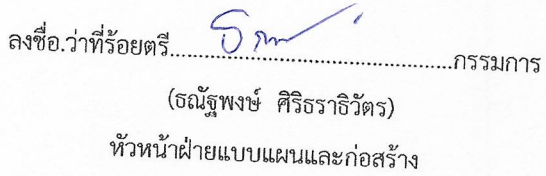 ลงชื่อ.ว่าที่ร้อยตรี..................................................กรรมการ
(ธณัฐพงษ์ ศิริธราธิวัตร)
หัวหน้าฝ่ายแบบแผนและก่อสร้าง